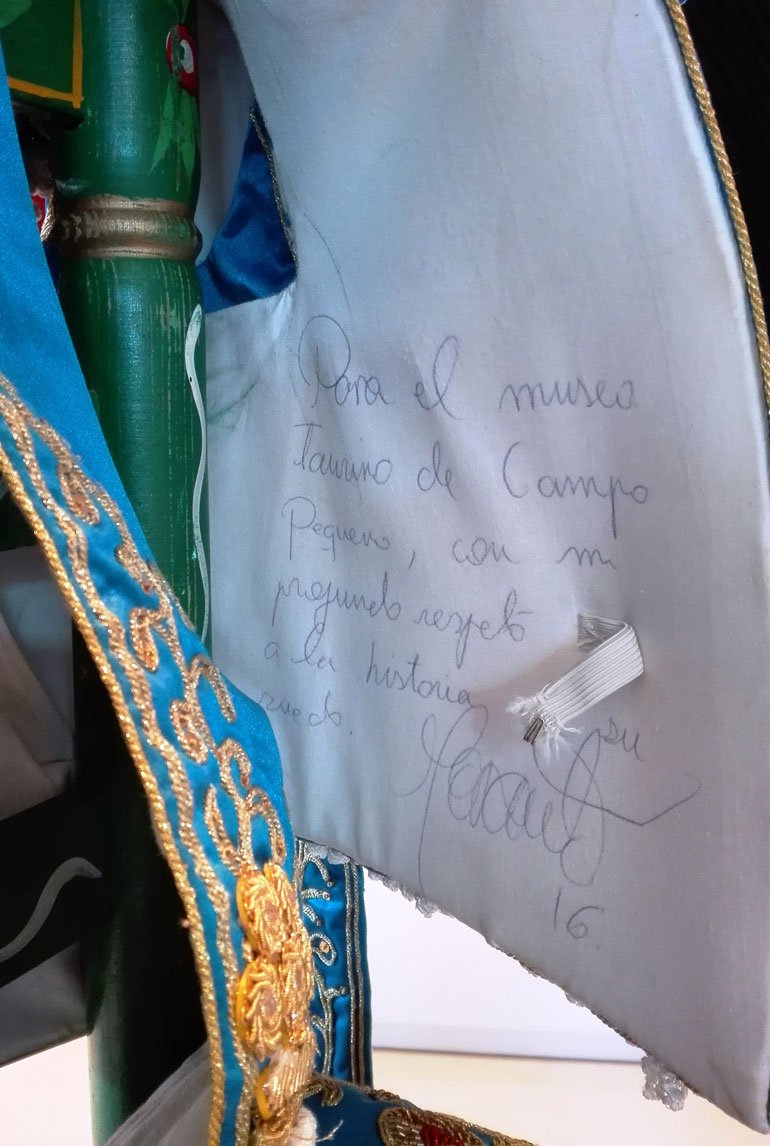 Para el museo
Taurino de Campo
Pequeno, con mi
profundo respeto
a la historia su
ruedo.
16.